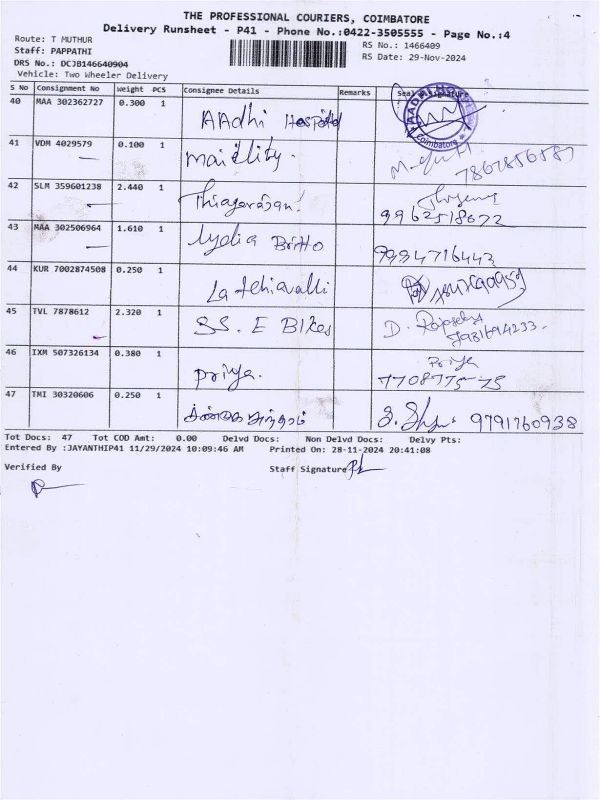 THE PROFESSIONAL COURIERS, COIMBATORE
Delivery Runsheet - P41 - Phone No.:0422-3505555 - Page No.:4
Route: T MUTHUR
RS No.: 1466409
Staff: PAPPATHI
RS Date: 29-Nov-2024
DRS No.: DCJB146640904
Vehicle: Two Wheeler Delivery
S No Consignment No Weight PCS Consignee Details Remarks Seal Signature
40 MAA 302362727 0.300 1 AAdhi Hospital
Coimbatore
41 VDM 4029579 0.100 1
42 SLM 359601238 2.440 1 Thiagarajan
9962518672
43 MAA 302506964 1.610 1 Lydia Britto 9994716443
44 KUR 7002874508 0.250 1
45 TVL 7878612 2.320 1 SS. E Bikes D.
46 IXM 507326134 0.380 1 priya. Priya
7708775-75
47 TMI 30320606 0.250 1 9791760938
Tot Docs: 47 Tot COD Amt: 0.00 Delvd Docs: Non Delvd Docs: Delvy Pts:
Entered By :JAYANTHIP41 11/29/2024 10:09:46 AM Printed On: 28-11-2024 20:41:08
Verified By Staff Signature